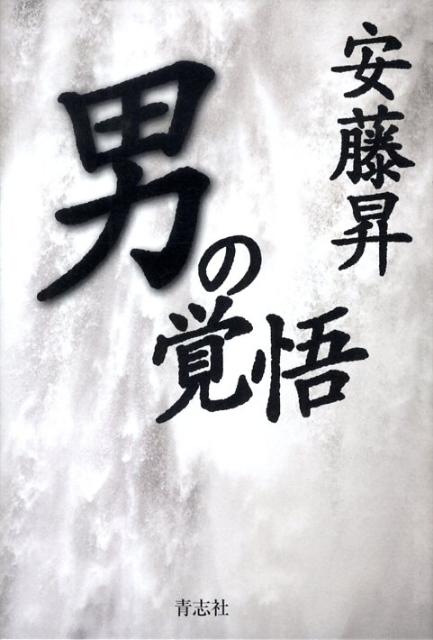 安藤昇
男の覚悟
青志社